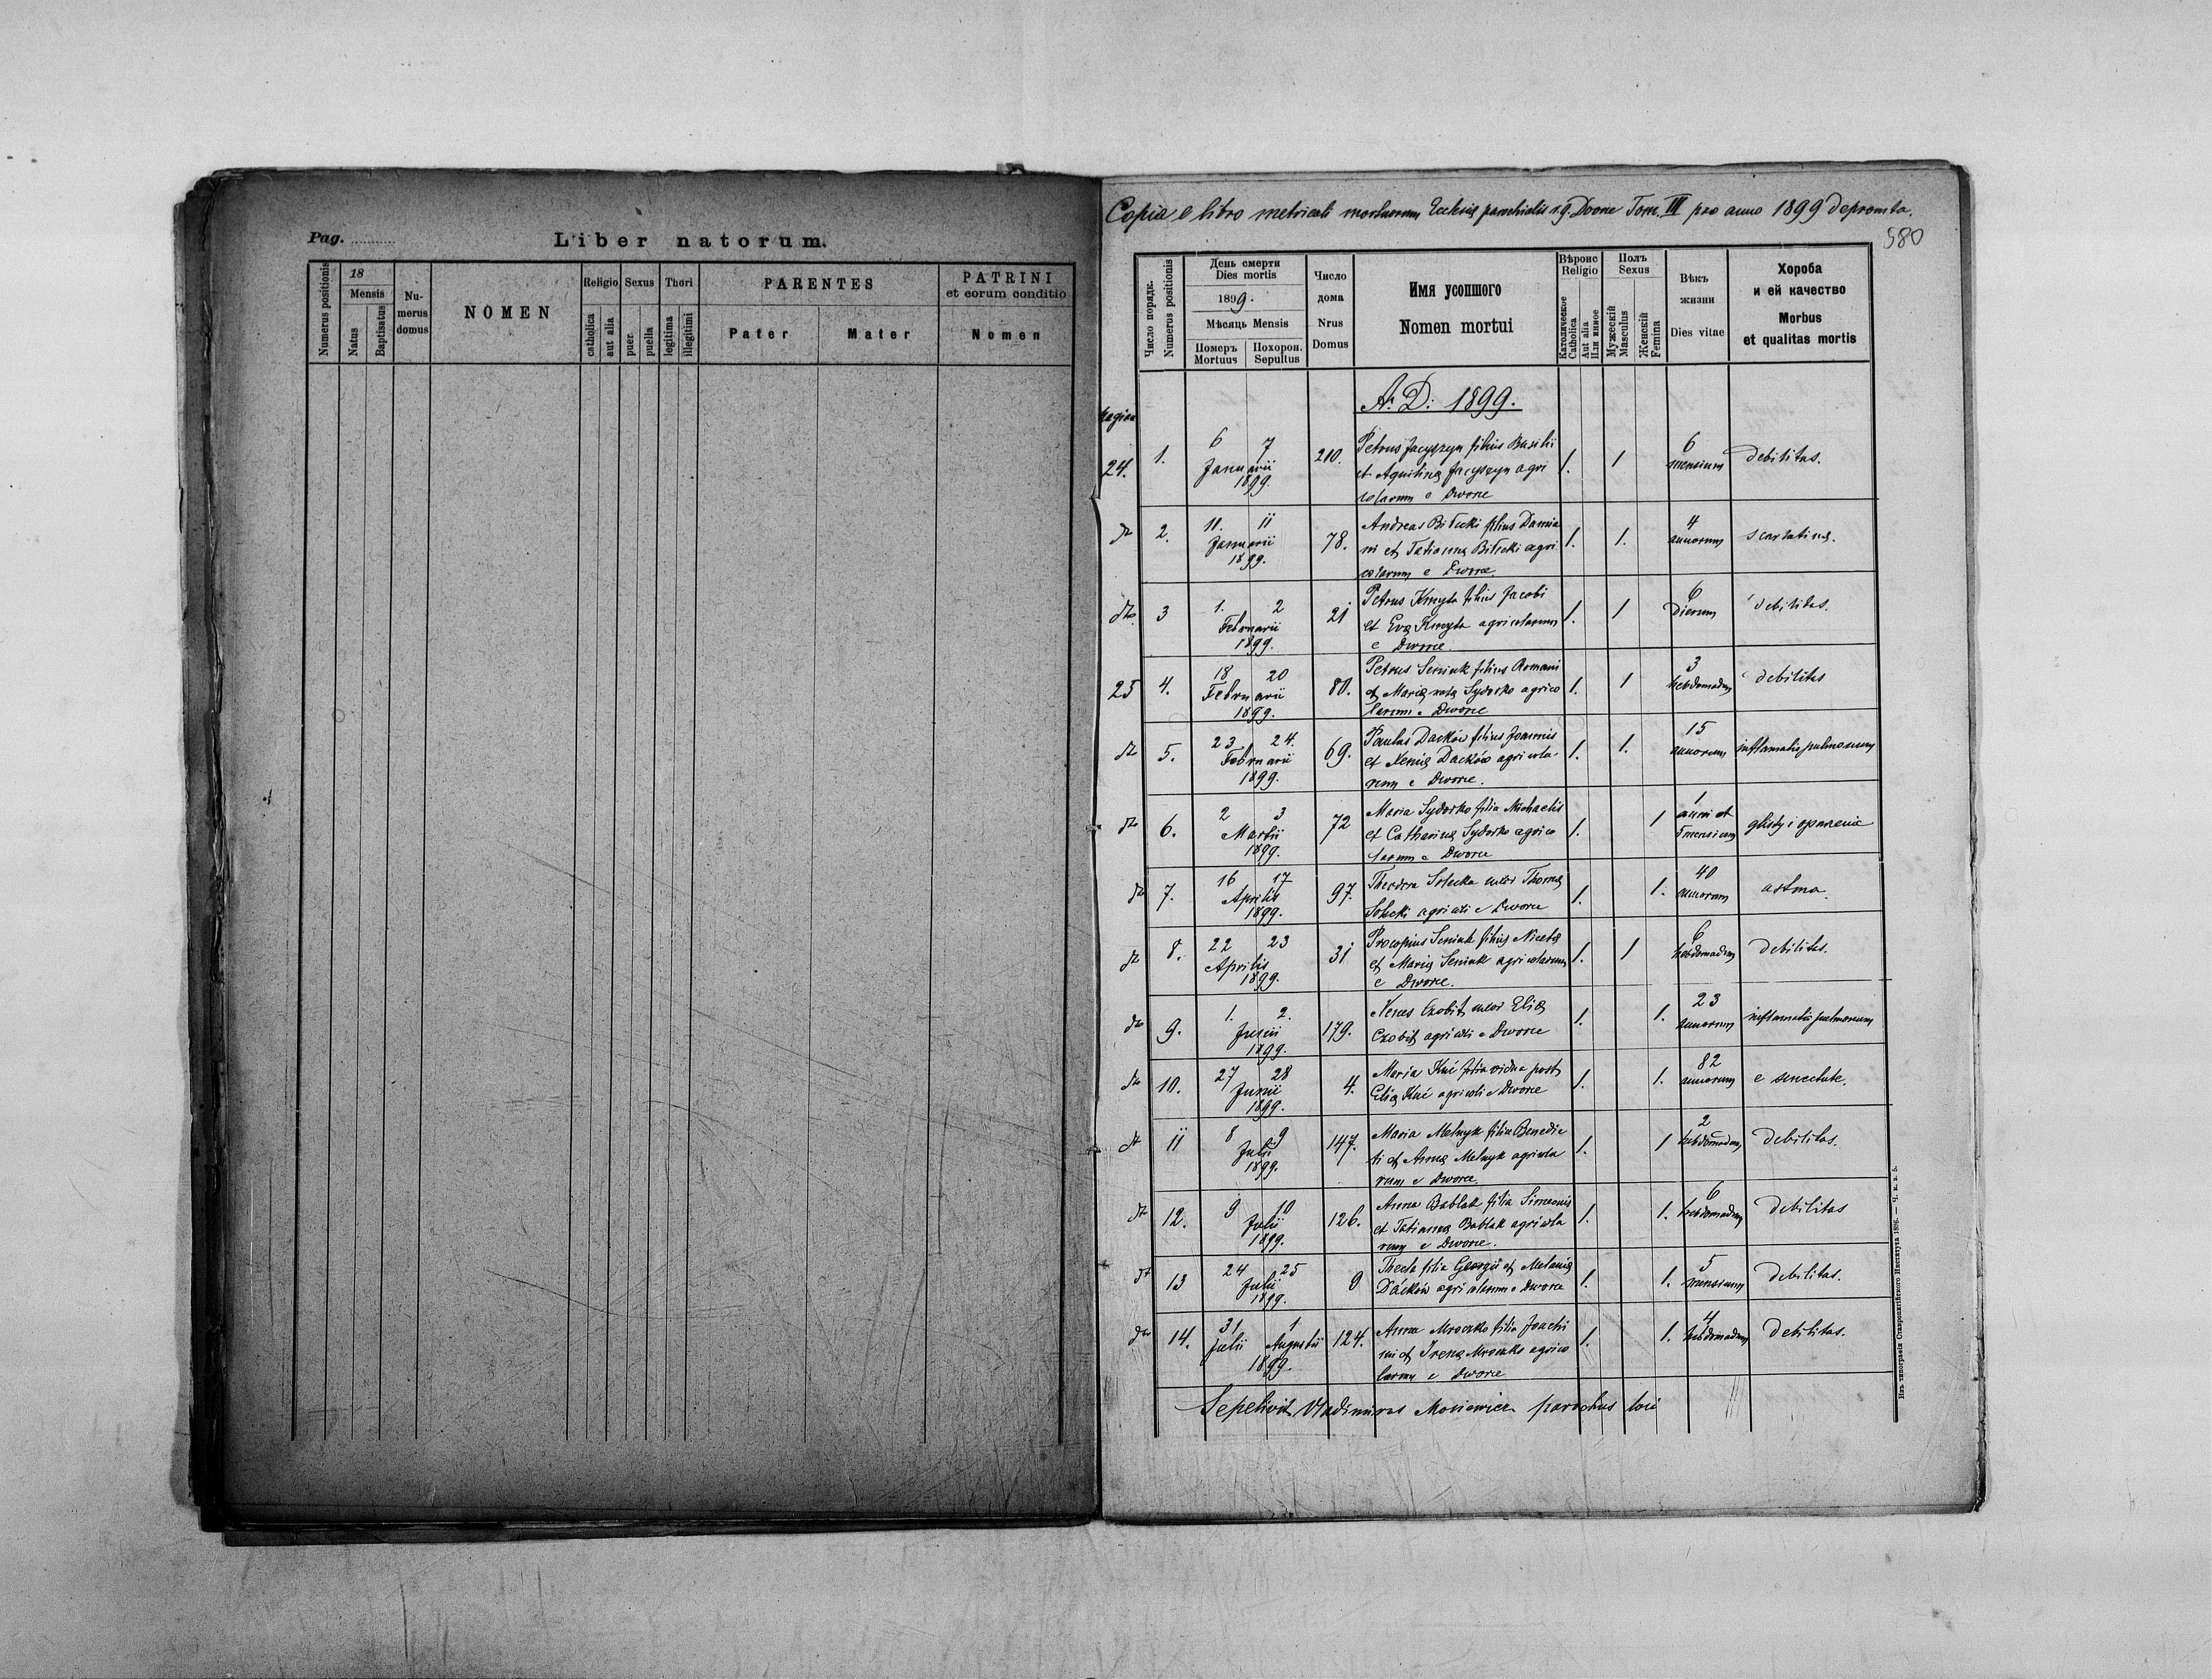 Pag. ...........
Liber natorum.
Numerus positionis
18
Mensis
Natus
Baptisatus
Nu-
merus
domus
NOMEN
Religio
catholica
aut alia
Sexus
puer.
puella
Thori
legitima
illegitimi
PARENTES
Pater
Mater
PATRINI
et eorum conditio
Nomen
Copia e libro metricali mortuorum Ecclesiæ parochialis r. g. Dworce Tom. III pro anno 1899 depromta.
580
Число порядк.
Numerus positionis
День смерти
Dies mortis
1899.
Мѣсяць Mensis
Померъ
Mortuus
Похорон.
Sepultus
Число
дома
Nrus
Domus
Имя усопшого
Nomen mortui
Вѣроис
Religio
Католическое
Catholica
Aut alia
Или иное
Полъ
Sexus
Мужескій
Masculus
Женскій
Femina
Вѣкъ
жизни
Dies vitae
Хороба
и ей качество
Morbus
et qualitas mortis
A. D. 1899.
Pagina
24. 1. 6 7 Januarii 1899. 210. Petrus Jacyszyn filius Basilii
et Aquilinæ Jacyszyn agri
colarum e Dworce 1. 1 6 mensium debilitas.
dto 2. 11. 11 Januarii 1899. 78. Andreas Bilecki filius Damia
ni et Tatianna Bilecki agri
colarum e Dworce. 1. 1. 4 annorum scarlatina.
dto 3 1. 2 Februarii 1899. 21 Petrus Kmyta filius Jacobi
et Eva Kmyta agricolarum
e Dworce 1. 1 6 dierum debilitas.
25 4. 18 20 Februarii 1899. 80. Petrus Seniuk filius Romani
et Maria nata Sydorko agrico
larum e Dworce 1. 1 3 hebdomadum debilitas
dto 5. 23 24. Februarii 1899. 69. Paulus Dacków filius Joannis
et Xenia Dacków agricola
rum e Dworce. 1. 1. 15 annorum inflamatio pulmonum
dto 6. 2 3 Martii 1899. 72 Maria Sydorko filia Michaelis
et Catharina Sydorko agrico
larum e Dworce 1. 1 1 anni et mensium glisty i oparzenie
dto 7. 16 17 Aprilis 1899. 97. Theodora Solecka uxor Thoma
Solecki agricoli e Dworce 1. 1. 40 annorum astma.
dto 8. 22 23 Aprilis 1899. 31 Procopius Seniuk filius Niceta
et Maria Seniuk agricolarum
e Dworce. 1. 1 6 hebdomadum debilitas.
dto 9. 1. 2. Junii 1899. 179. uxor Elia
agricoli e Dworce 1. 1. 23 annorum inflamatio pulmonum
dto 10. 27 28 Junii 1899. 4. Maria filia vidua post
Elia agricoli e Dworce 1. 1. 82 annorum e senectute.
dto 11 8 9 Julii 1899. 147. Maria Melnyk filia Benedic
ti et Anna Melnyk agricola
rum e Dworce. 1. 1 2 hebdomadum debilitas.
dto 12. 9 10 Julii 1899. 126. Anna Bablak filia Simeonis
et Tatianna Bablak agricola
rum e Dworce. 1. 1. 6 hebdomadum debilitas
dto 13 24 25 Julii 1899. 9 Thecla filia Georgii et Melania
Dacków agricolarum e Dworce 1. 1. 5 mensium debilitas.
dto 14. 31 Julii 1 Augustii 1899. 124. Anna Mroczko filia Joachi
mi et Irena Mroczko agrico
larum e Dworce 1. 1. 4 hebdomadum debilitas.
Sepelivit Vladimirus Mosiewicz parochus loci
Изъ типографіи Ставропигійского Института 1896. — Ч. к. з. 5.